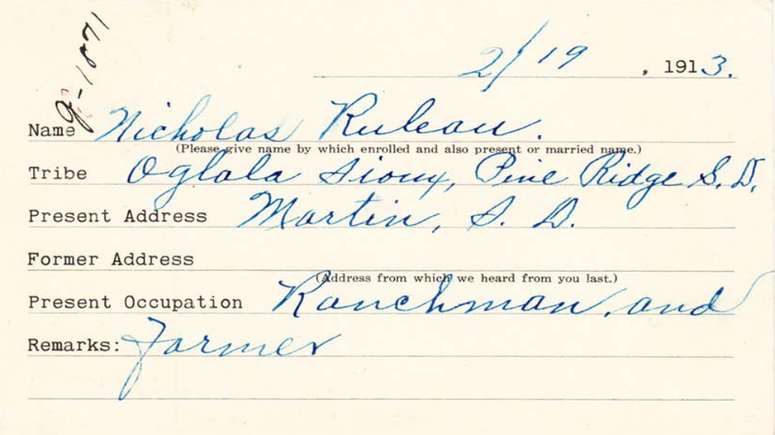 2/19, 1913.
Name Nicholas Ruleau.
(Please give name by which enrolled and also present or married name.)
Tribe Oglala Sioux, Pine Ridge S. D.
Present Address Martin, S. D.
Former Address
(Address from which we heard from you last.)
Present Occupation Ranchman, and
Remarks: Farmer